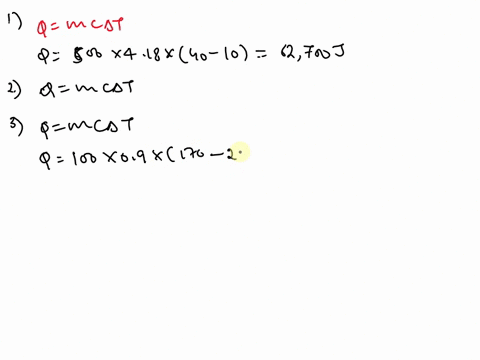 1) Q = mcΔT
Q = 500 × 4.18 × (40 - 10) = 62,700 J
2) Q = mcΔT
3) Q = mcΔT
Q = 100 × 0.9 × (170 - 2